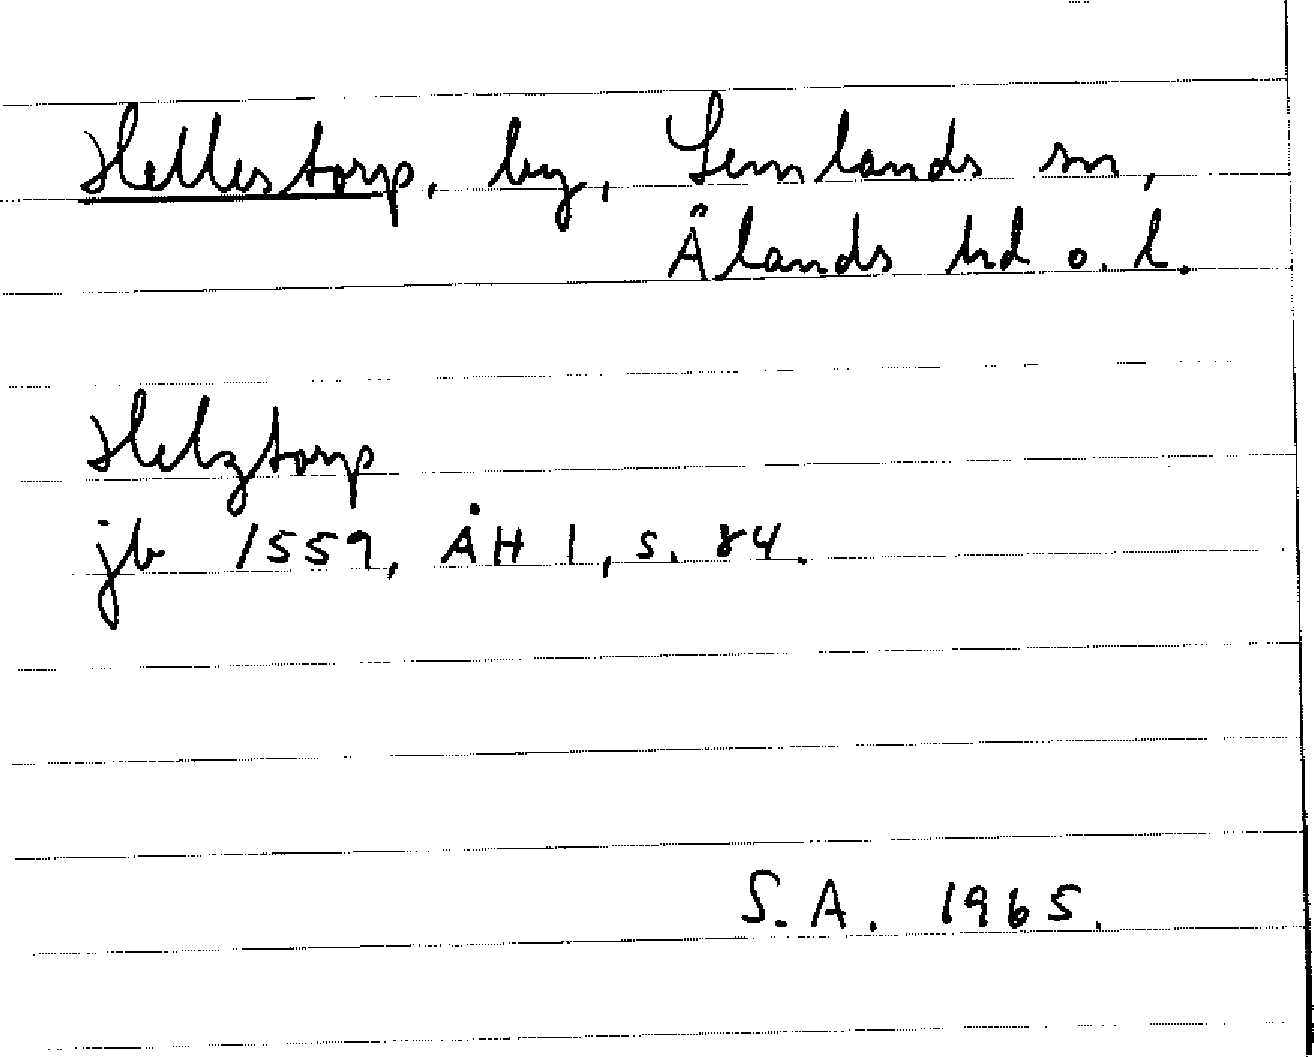 Hellestorp, by, Lemlands sn,
Ålands hd o. l.
Helgtorp
jb 1559, ÅH 1, s. 84.
S.A. 1965.